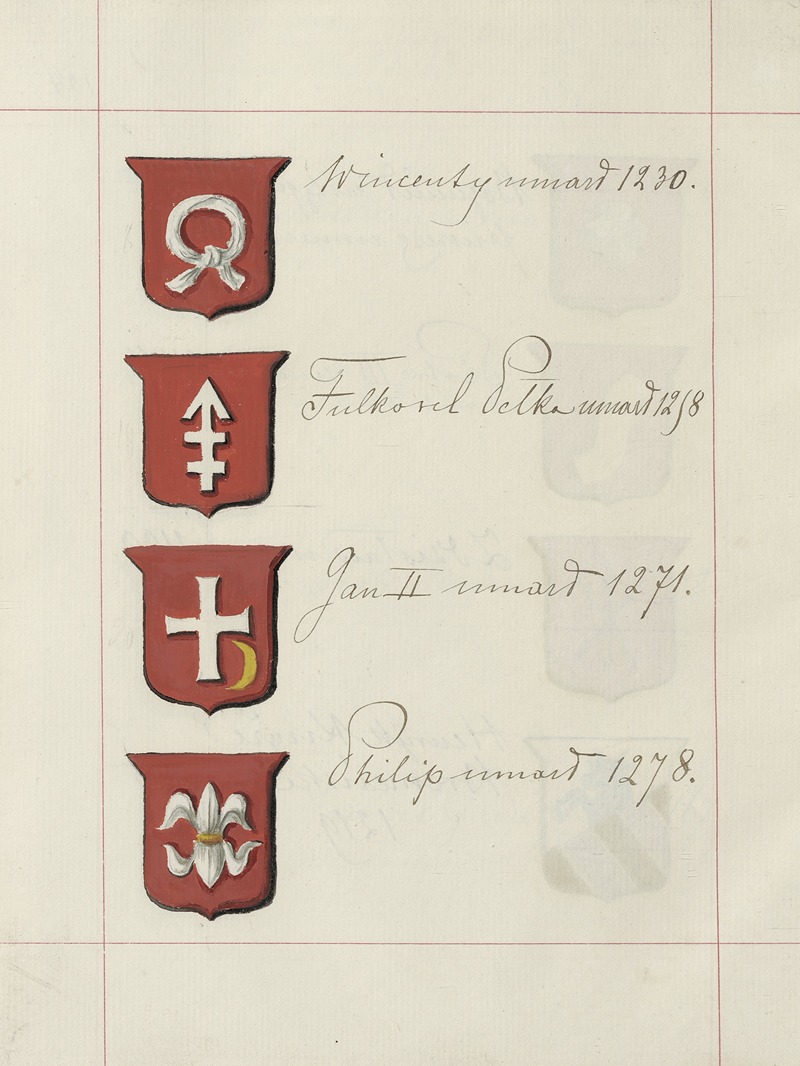 Wincenty umard 1230.
Fulko vel Pełka umard 1258
Jan II umard 1271.
Philip umard 1278.